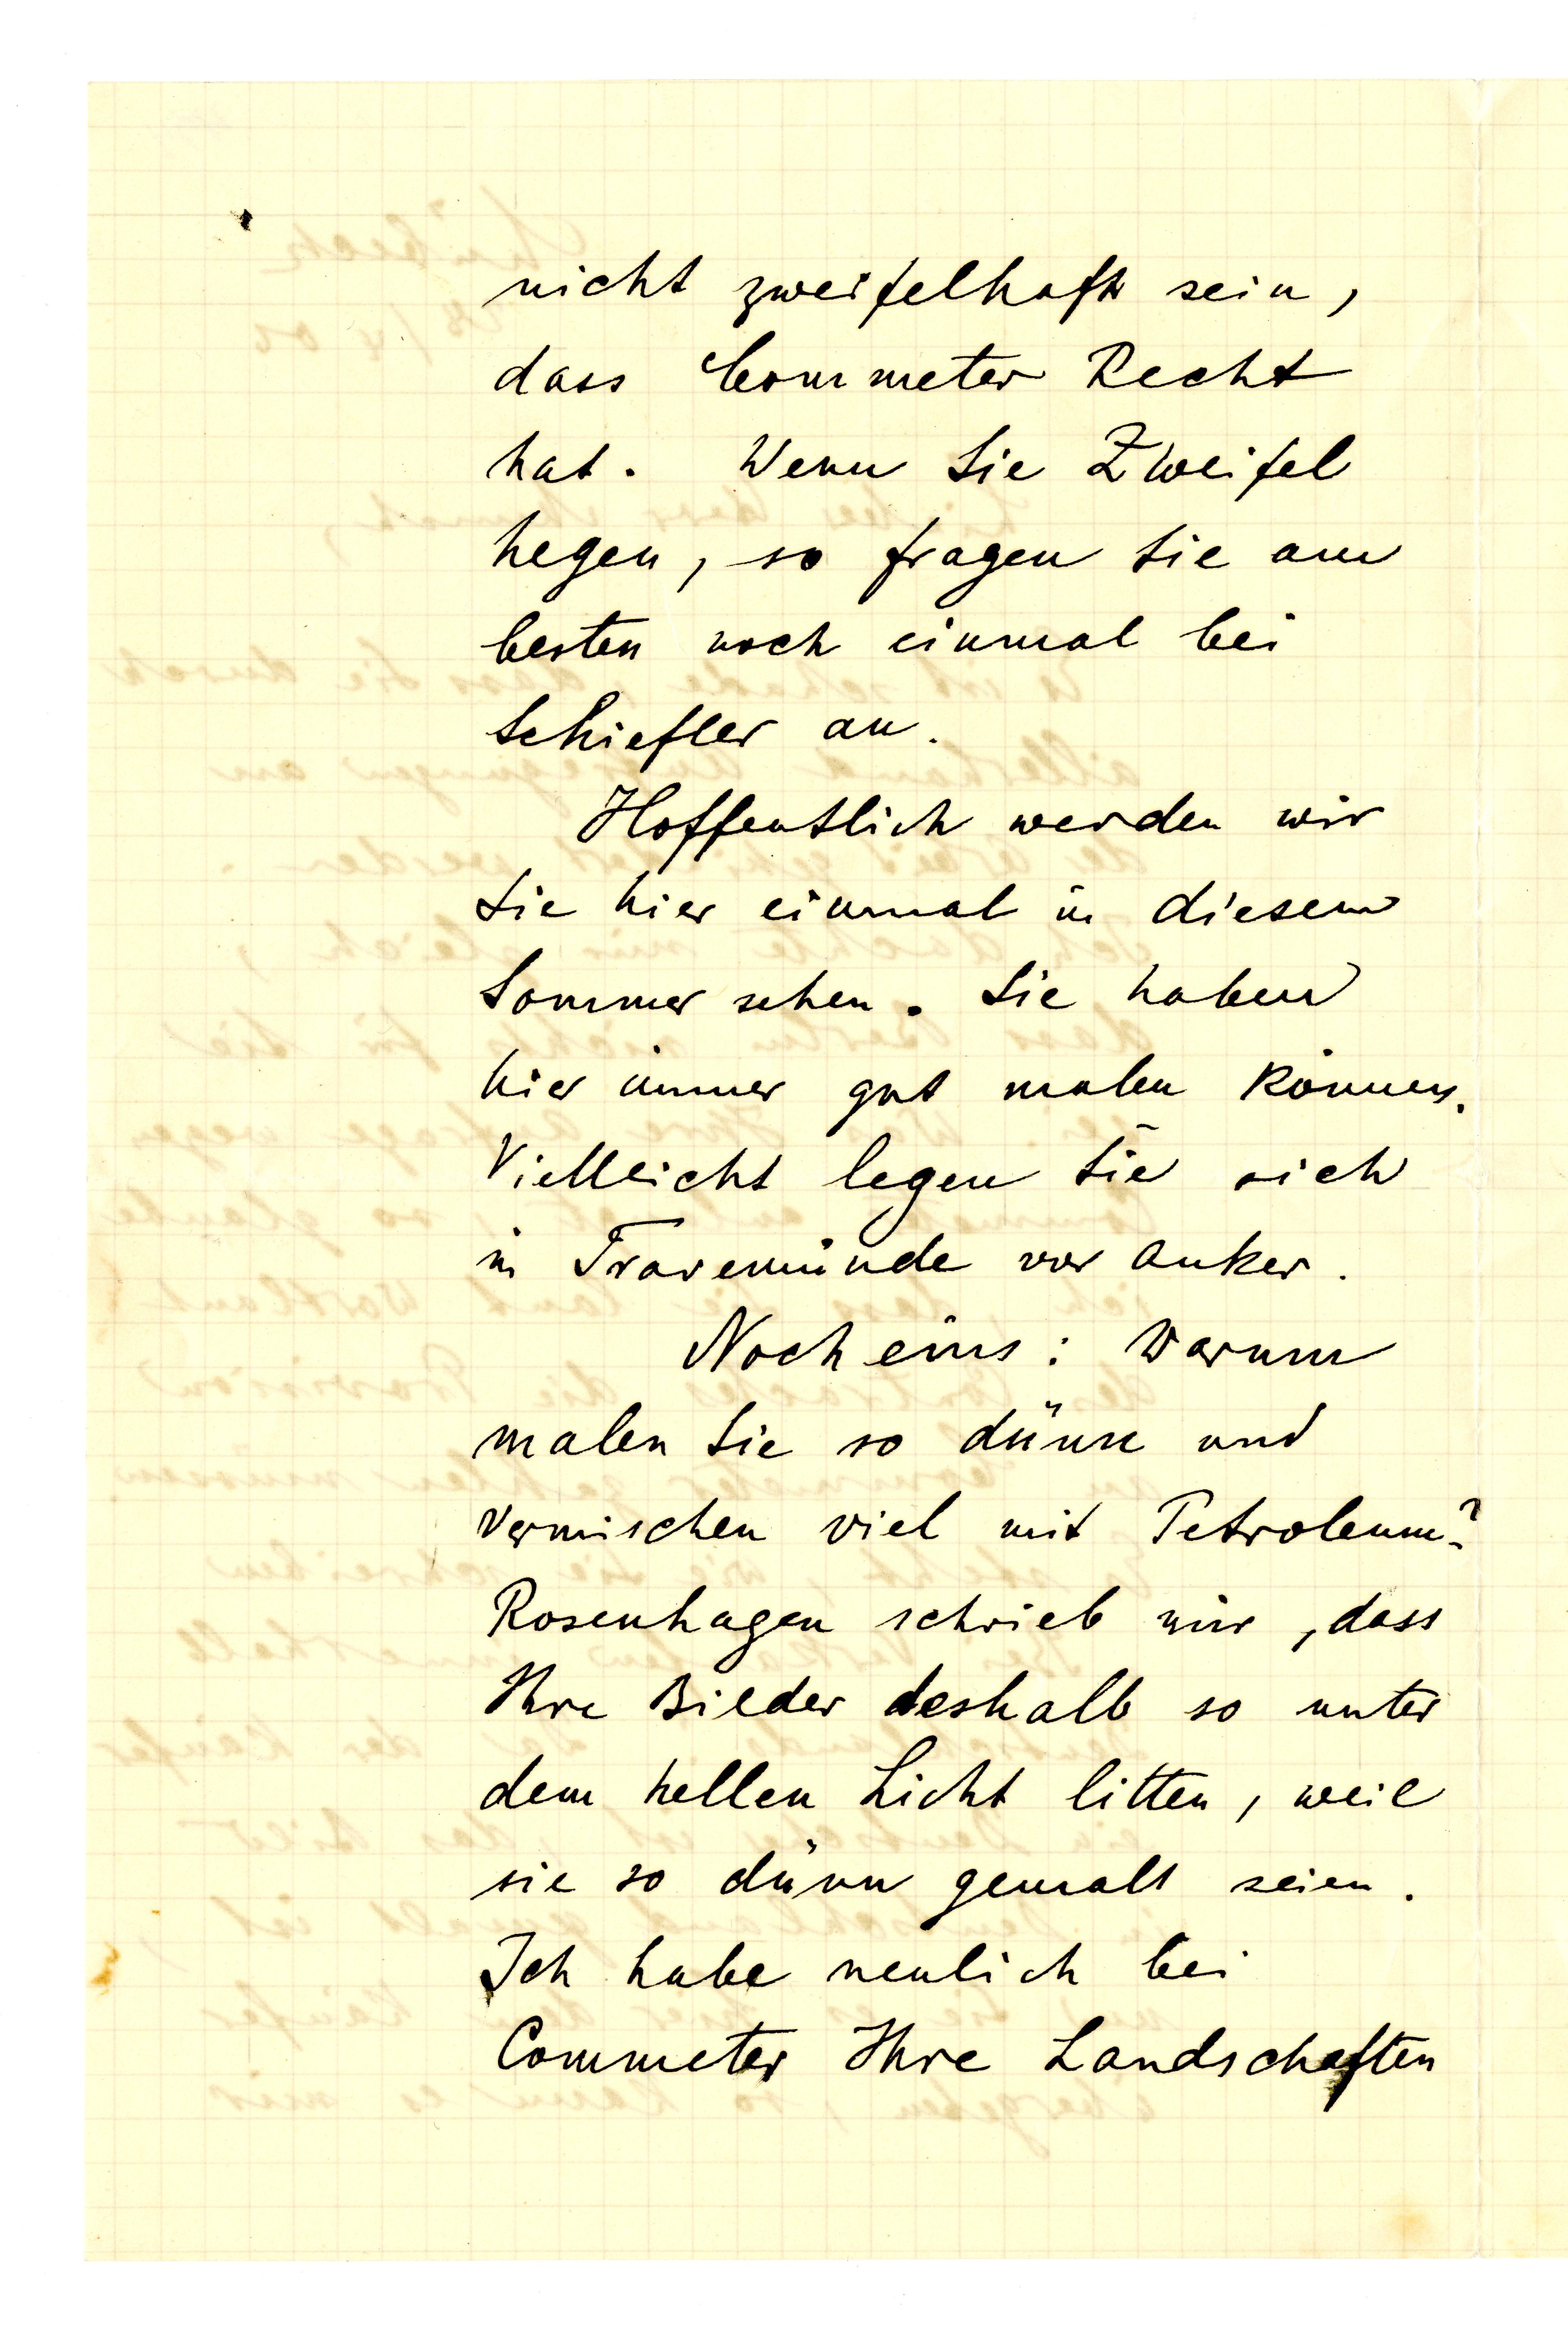 nicht zweifelhaft sein,
dass Commeter Recht
hat. Wenn Sie Zweifel
hegen, so fragen Sie am
besten noch einmal bei
Schiefler an.
Hoffentlich werden wir
Sie hier einmal in diesem
Sommer sehen. Sie haben
hier immer gut malen können.
Vielleicht legen Sie sich
in Travemünde vor Anker.
Noch eins: Warum
malen Sie so dünn und
vermischen viel mit Petroleum?
Rosenhagen schrieb mir, dass
Ihre Bilder deshalb so unter
dem hellen Licht litten, weil
sie so dünn gemalt seien.
Ich habe neulich bei
Commeter Ihre Landschaften